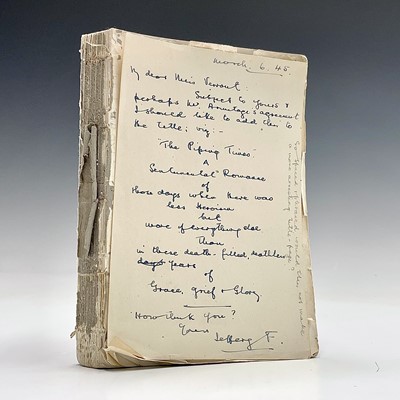 March. 6. 45
My dear Miss
Subject to yours &
perhaps Mr Armitage's agreement
I should like to add this to
the title; viz:-
"The Piping Times"
A
Sentimental Romance
of
those days when there was
less Heroism
but
more of everything else
Than
in these death-filled, deathless
days years
of
Grace, Grief & Glory.
How think you?
Yours
Jeffery F.